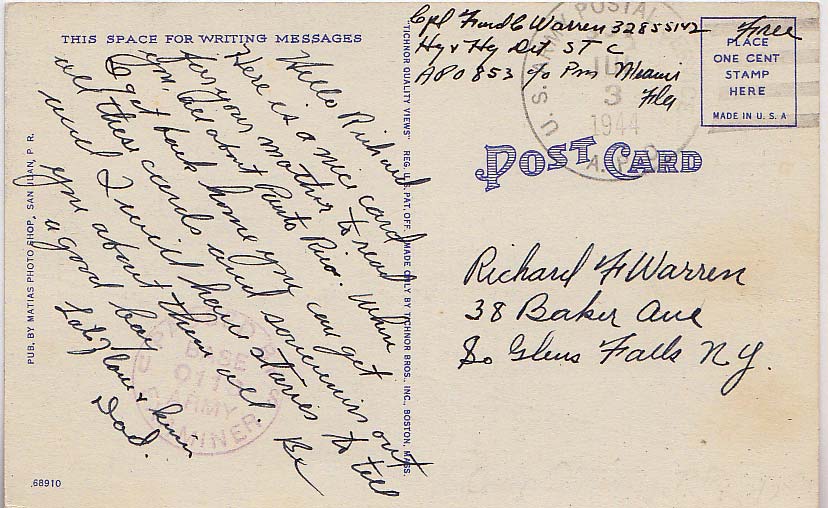 THIS SPACE FOR WRITING MESSAGES
Hello Richard
Here is a nice card
for your mother to read
you all about Puerto Rico. When
I get back home you can get
all these cards and souvenirs out
and I will have stories to tell
you about them all. Be
a good boy
Lots of love & kisses
Dad.
PUB. BY MATIAS PHOTO SHOP, SAN JUAN, P. R.
68910
"TICHNOR QUALITY VIEWS" REG. U.S. PAT. OFF. MADE ONLY BY TICHNOR BROS., INC. BOSTON, MASS.
PASSED BY
BASE
ARMY
EXAMINER
Cpl Ford C Warren 32855142
Hq & Hq Det S T C
APO 853 c/o Pm Miami
Fla
Free
U.S. ARMY POSTAL
JUL
3
1944
A.P.O.
PLACE
ONE CENT
STAMP
HERE
MADE IN U. S. A
POST CARD
Richard F Warren
38 Baker Ave
So Glens Falls N.Y.